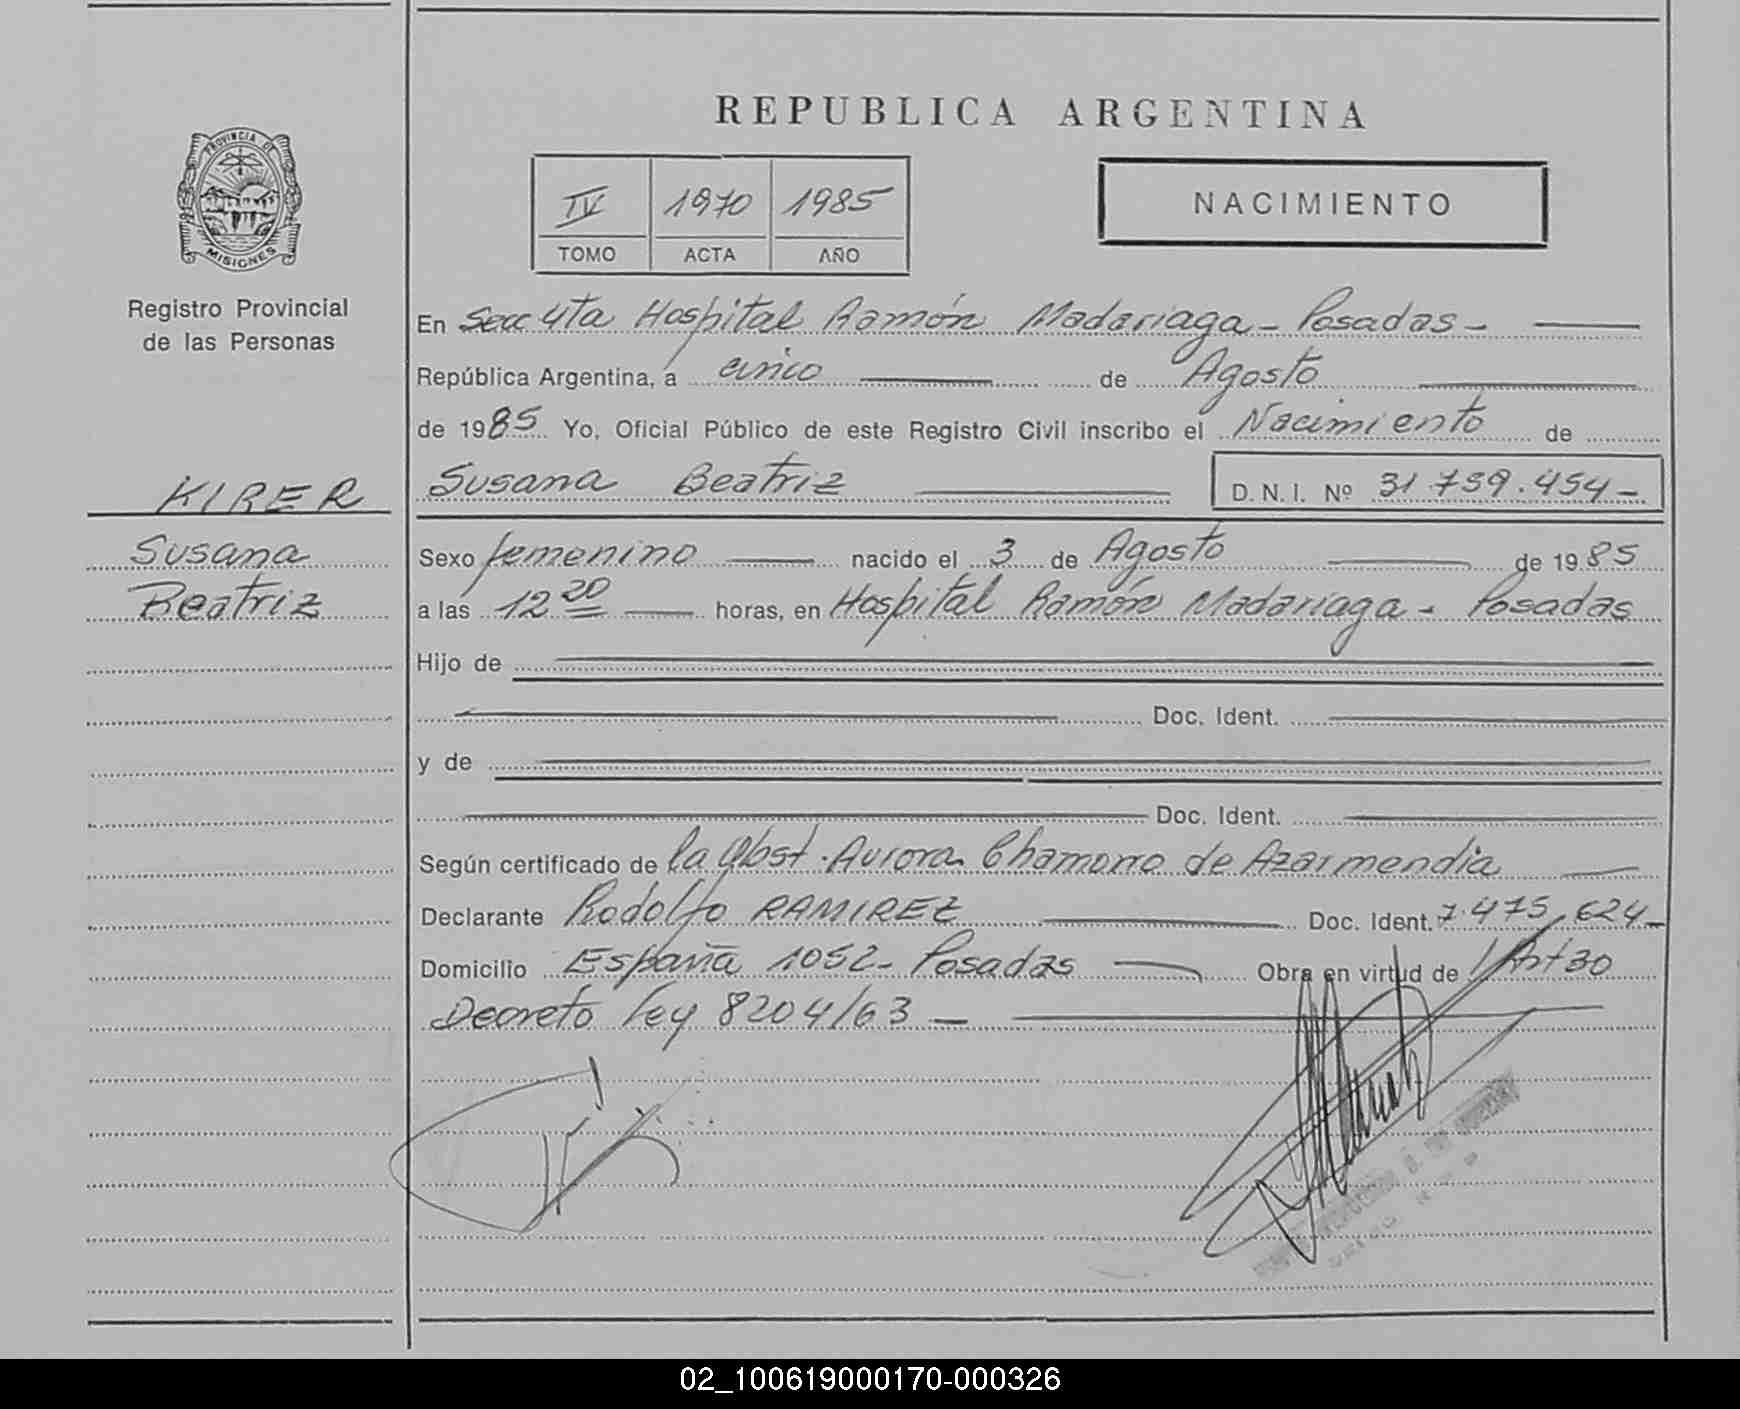 REPUBLICA ARGENTINA
PROVINCIA DE
MISIONES
Registro Provincial
de las Personas
IV 1970 1985
TOMO ACTA AÑO
NACIMIENTO
En Secc 4ta Hospital Ramón Madariaga - Posadas -
República Argentina, a cinco de Agosto
de 1985 Yo, Oficial Público de este Registro Civil inscribo el Nacimiento de
KIRER
Susana
Beatriz
Susana Beatriz D. N. I. Nº 31.759.454-
Sexo femenino nacido el 3 de Agosto de 1985
a las 12 20 horas, en Hospital Ramón Madariaga - Posadas
Hijo de
Doc. Ident.
y de
Doc. Ident.
Según certificado de la Obst. Aurora Chamorro de Azarmendia
Declarante Rodolfo RAMIREZ Doc. Ident. 7.475.624-
Domicilio España 1052- Posadas Obra en virtud de Art 30
Decreto Ley 8204/63 -
02_100619000170-000326